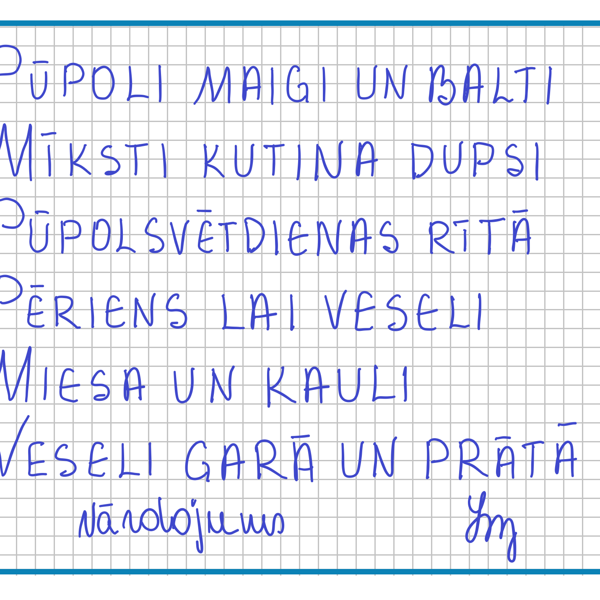 PŪPOLI MAIGI UN BALTI
MĪKSTI KUTINA DUPSI
PŪPOLSVĒTDIENAS RĪTĀ
PĒRIENS LAI VESELI
MIESA UN KAULI
VESELI GARĀ UN PRĀTĀ